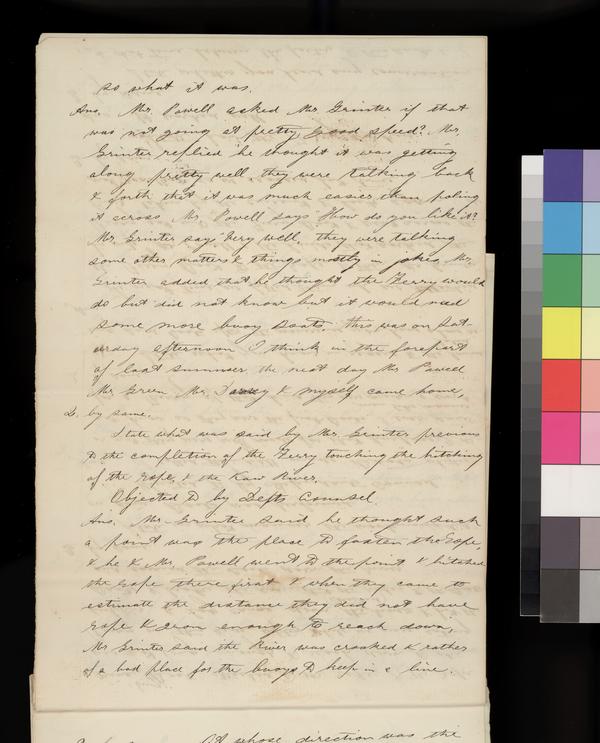 so what it was.
Ans. Mr. Powell asked Mr Grinter if that
was not going at pretty good speed? Mr.
Grinter replied he thought it was getting
along pretty well, they were talking back
& forth that it was much easier than poling
it across Mr. Powell says "How do you like it?
Mr. Grinter says "Very well, they were talking
some other matters & things mostly in jokes, Mr.
Grinter added that he thought the Ferry would
do but did not know but it would need
some more buoy boats, this was on Sat-
urday afternoon I think in the forepart
of last summer the next day Mr Powell
Mr Green Mr. & myself came home,
2. by same.
State what was said by Mr. Grinter previous
to the completion of the Ferry touching the hitching
of the Rope, & the Kaw River.
Objected to by Defts Counsel
Ans. Mr. Grinter said he thought such
a point was the place to fasten the Rope,
& he & Mr. Powell went to the point & hitched
the Rope there first & when they came to
estimate the distance they did not have
Rope & Iron enough to reach down,
Mr Grinter said the River was crooked & rather
of a bad place for the buoys to keep in a line.
At whose direction was the